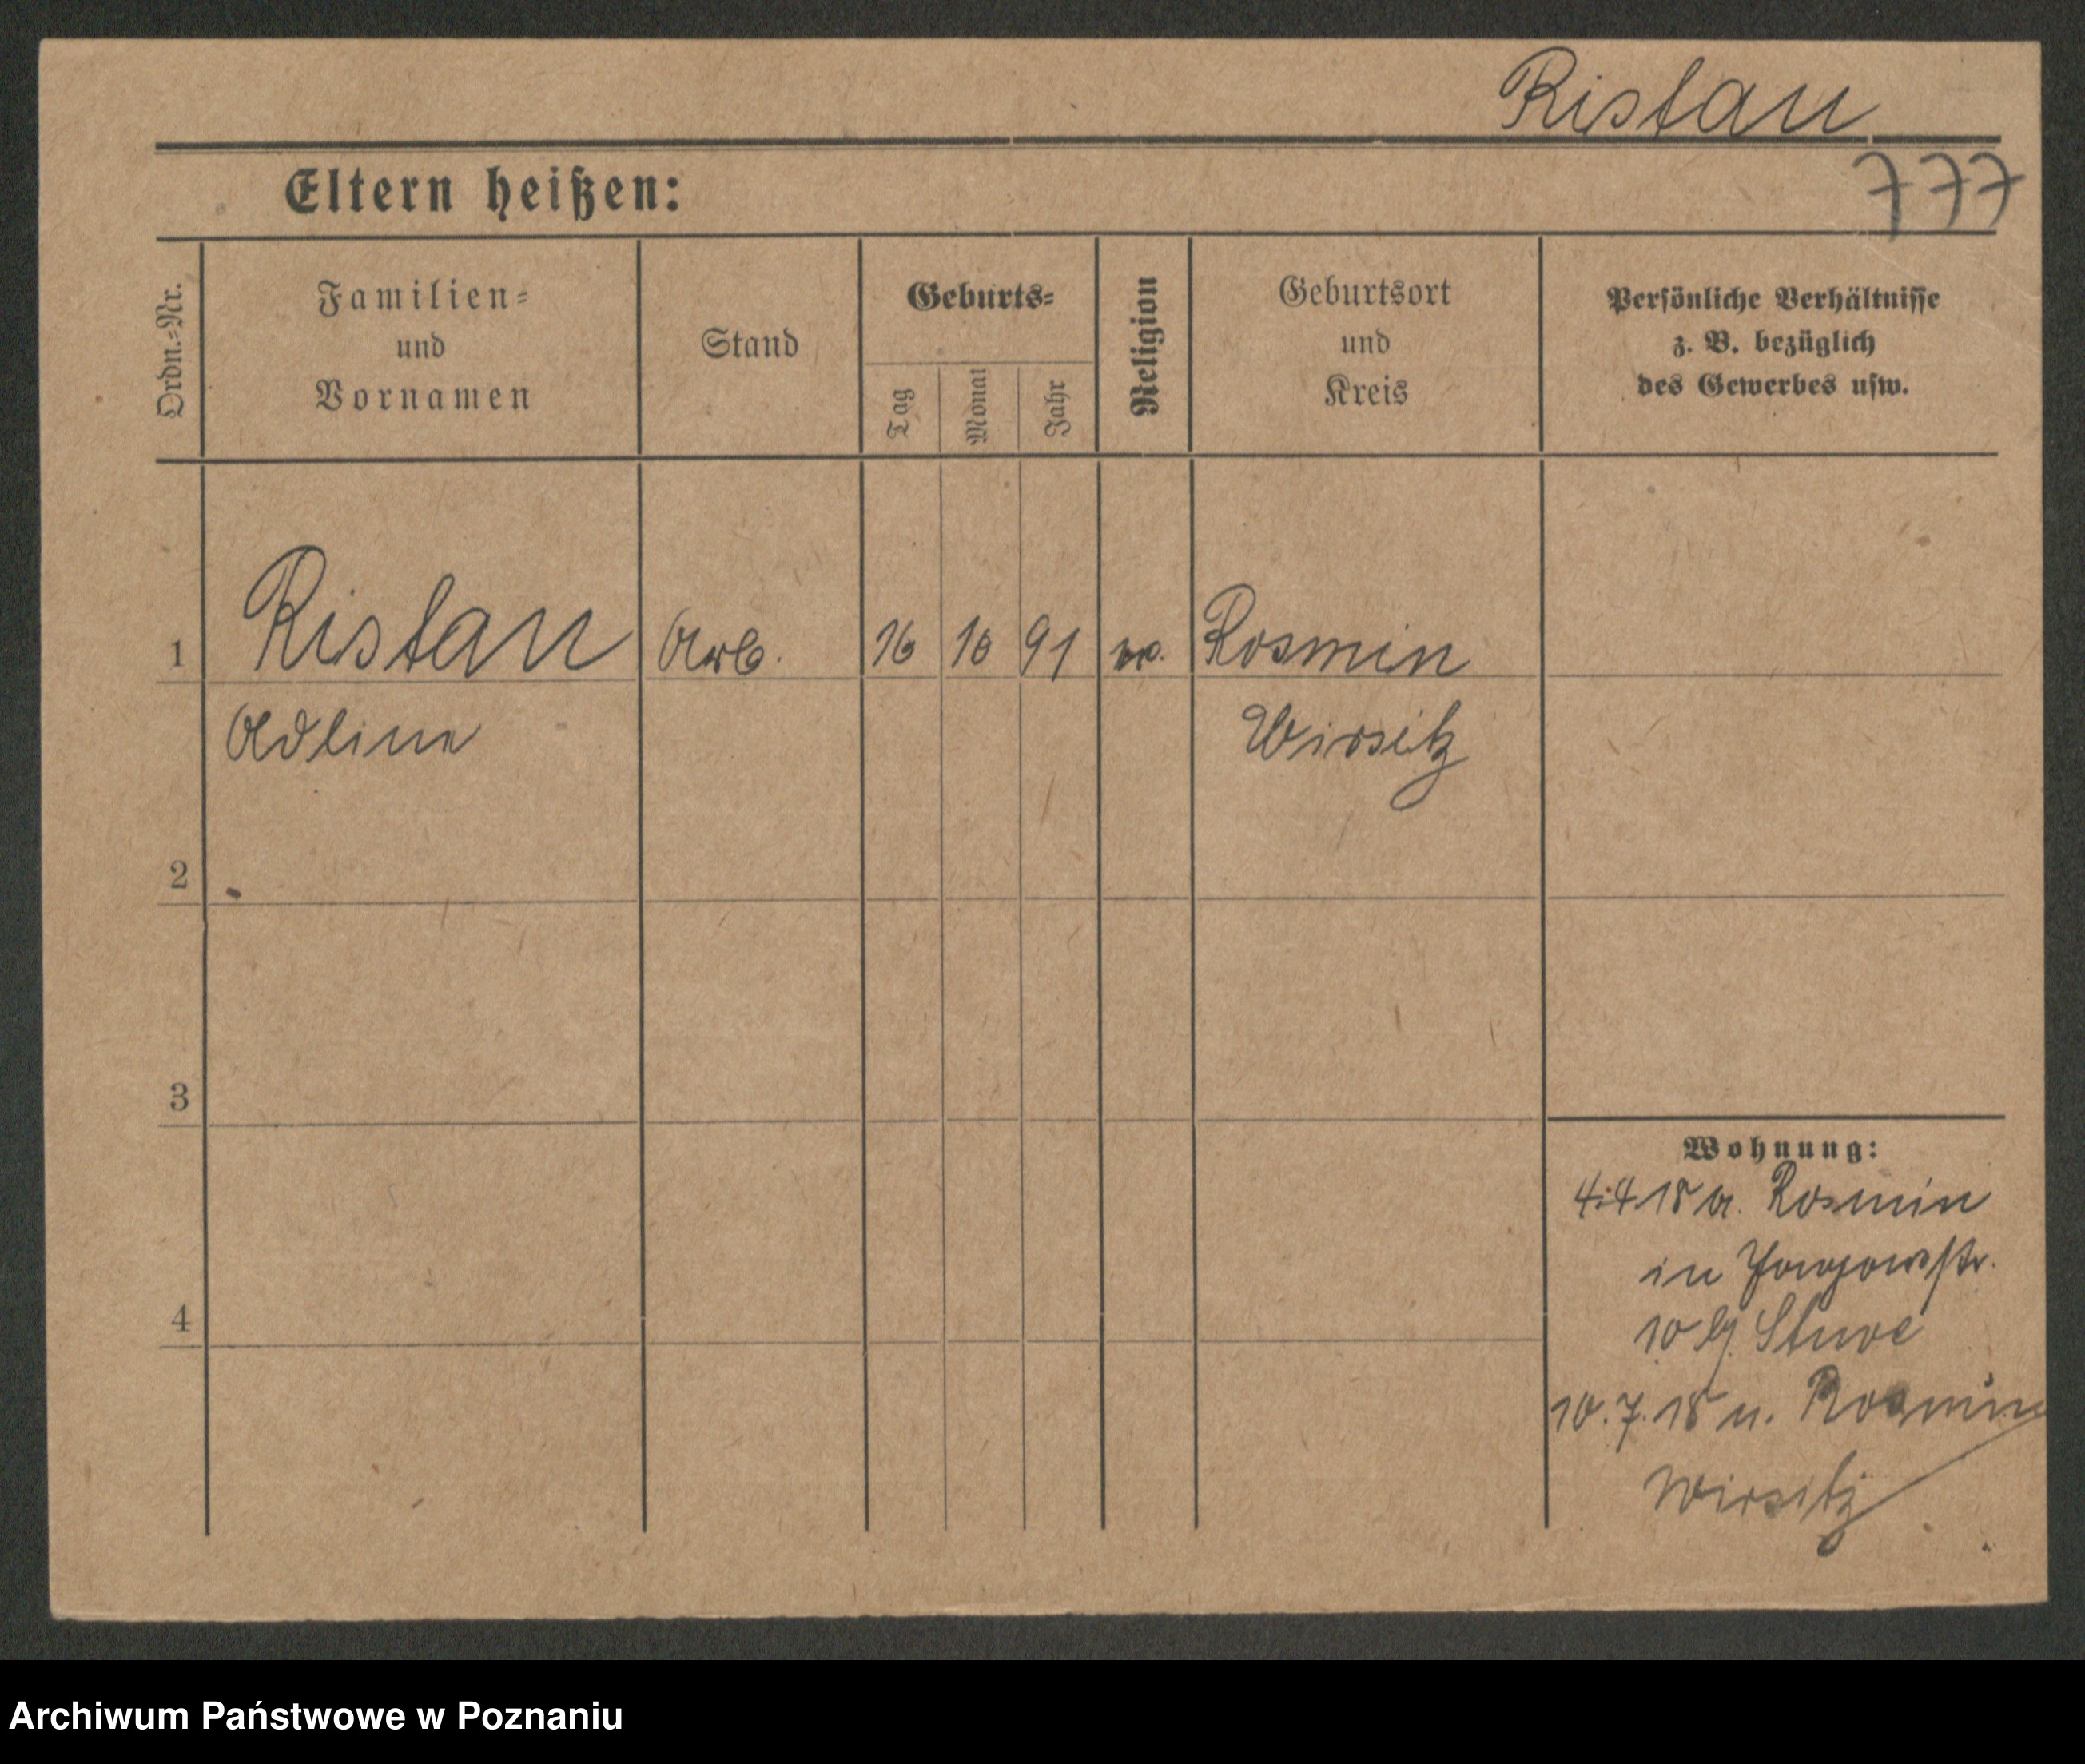 Ristau
777
Eltern heißen:
Ordn.-Nr.
Familien-
und
Vornamen
Stand
Geburts-
Tag
Monat
Jahr
Religion
Geburtsort
und
Kreis
Persönliche Verhältnisse
z. B. bezüglich
des Gewerbes usw.
1 Ristau Arb. 16 10 91 Rosmin
Adline Wirsitz
2
3
4
Wohnung:
4.4.18 a. Rosmin
in
10 bj Stuve
10.7.18 u. Rosmin
Wirsitz
Archiwum Państwowe w Poznaniu